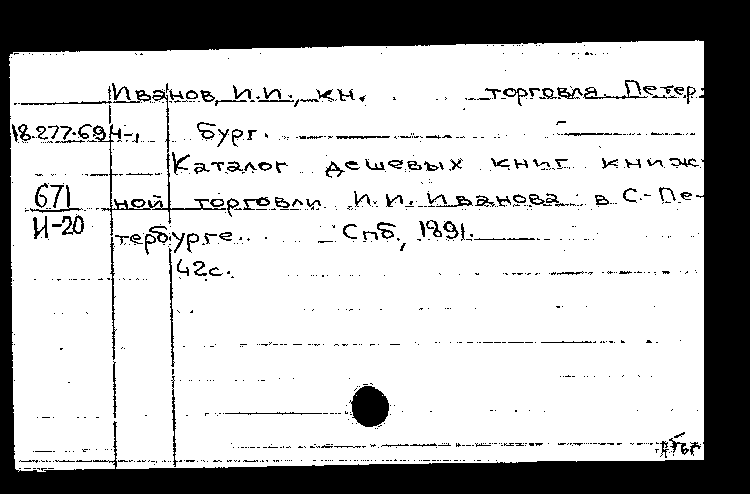 Иванов, И.И., кн. торговля. Петер-
18.277.694-, бург.
Каталог дешевых книг книж-
671 ной торговли И.И. Иванова в С.-Пе-
И-20 тербурге. Спб., 1891.
42с.